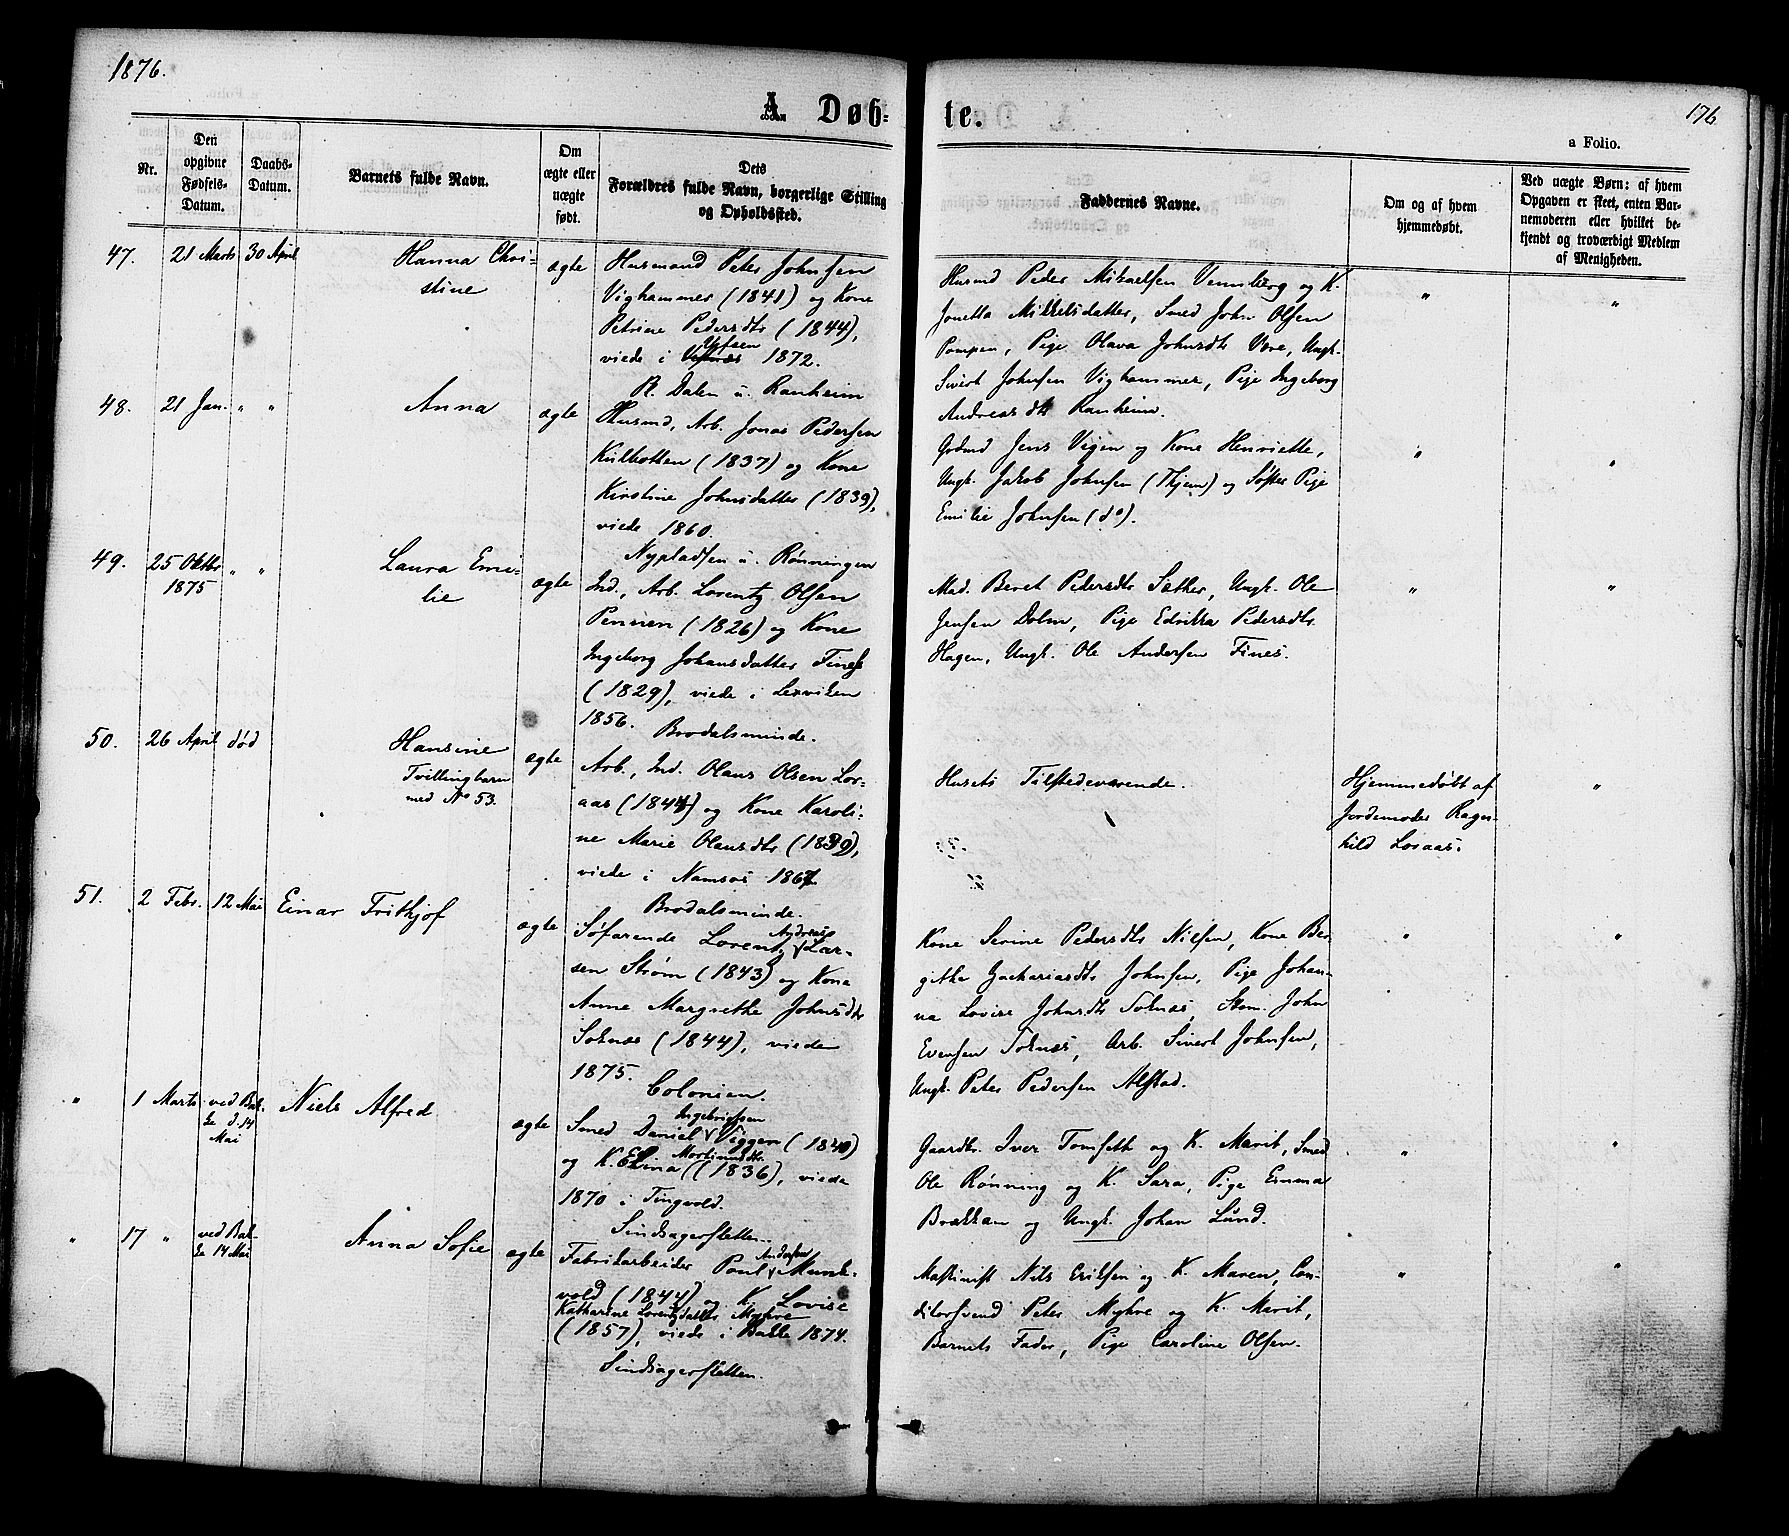 1876.
176
A. Døb-
te.
a Folio.
Nr.
Den
opgivne
Fødsels-
Datum.
Daabs-
Datum.
Barnets fulde Navn.
Om
ægte eller
uægte
født.
Dets
Forældres fulde Navn, borgerlige Stilling
og Opholdssted.
Faddernes Navne.
Om og af hvem
hjemmedøbt.
Ved uægte Børn: af hvem
Opgaven er skeet, enten Bar-
nemoderen eller hvilket be-
kjendt og troværdigt Medlem
af Menigheden.
47. 21 Marts 30 April Hanna Chri-
stine
ægte
Husmand Peter Johnsen
Vighammer (1841) og Kone
Petrine Pedersdtr (1844),
Ypseen
viede i 1872.
R. Dalen u. Ranheim
Husmd Peder Mikaelsen Vennberg og K.
Jonetta Mikkelsdatter, Smed John Olsen
Pompen, Pige Olava Johnsdtr Være, Ungk.
Sivert Johnsen Vighammer, Pige Ingeborg
Andreasdtr Ranheim.
" "
48. 21 Jan. " " Anna
ægte
Husmd, Arb. Jonas Pedersen
Kulbotten (1837) og Kone
Kirstine Johnsdatter (1839),
viede 1860.
Nypladsen u. Rønningen
Grdmd Jens Vigen og Kone Henriette,
Ungk. Jakob Johnsen (Thjem) og Søster Pige
Emilie Johnsen (do).
" "
49. 25 Oktbr
1875
" "
Laura Emi-
lie
ægte
Ind., Arb. Lorentz Olsen
Pennen (1826) og Kone
Ingeborg Johansdatter Fines
(1829), viede i Lexviken
1856.
Brodalsminde.
Mad. Beret Pedersdtr Sæther, Ungk. Ole
Jensen Dolm, Pige Edrikka Pedersdtr
Hagen, Ungk. Ole Andersen Fines.
" "
50. 26 April død Hansine
Tvillingbarn
med No 53.
ægte
Arb., Ind. Olaus Olsen Lor-
aas (1844) og Kone Karoli-
ne Marie Olausdtr (1839),
viede i Namsos 1867.
Brodalsminde.
Husets Tilstedeværende.
Hjemmedøbt af
Jordemoder Ragn-
hild Loraas.
"
51. 2 Febr. 12 Mai Einar Frithjof
ægte
Andreas
Søfarende Lorentz Lar-
sen Strøm (1843) og Kone
Anne Margrethe Johnsdtr
Solnæs (1844), viede
1875.
Colonien.
Kone Serine Pedersdtr Nielsen, Kone Ber-
githe Zachariasdtr Johnsen, Pige Johan-
na Lovise Johnsdtr Solnæs, John
Evensen Solnæs, Arb. Sivert Johnsen,
Ungk. Peter Pedersen Alstad.
" "
" 1 Marts ved Bak-
ke d. 14
Mai
Niels Alfred
ægte
Ingebrigtsen
Smed Daniel Viggen (1840)
Mortinusdtr.
og K. Elina (1836), viede
1870 i Tingvold.
Sindsagersletten.
Gaardbr. Iver Tomseth og K. Marit, Smed
Ole Rønning og K. Sara, Pige Emma
Brækkan og Ungk. Johan Lund.
" "
" 17 " ved Bak-
ke 14 Mai
Anna Sofie
ægte
Andersen
Fabrikarbeider Poul Munk-
vold (1844) og K. Lovise
Katharine Lorentzdatter Myhre
(1857), viede i Bakke 1874.
Sindsagersletten.
Maskinist Nils Eriksen og K. Maren, Con-
ditorsvend Peter Myhre og K. Marit,
Barnets Fader, Pige Caroline Olsen.
" "